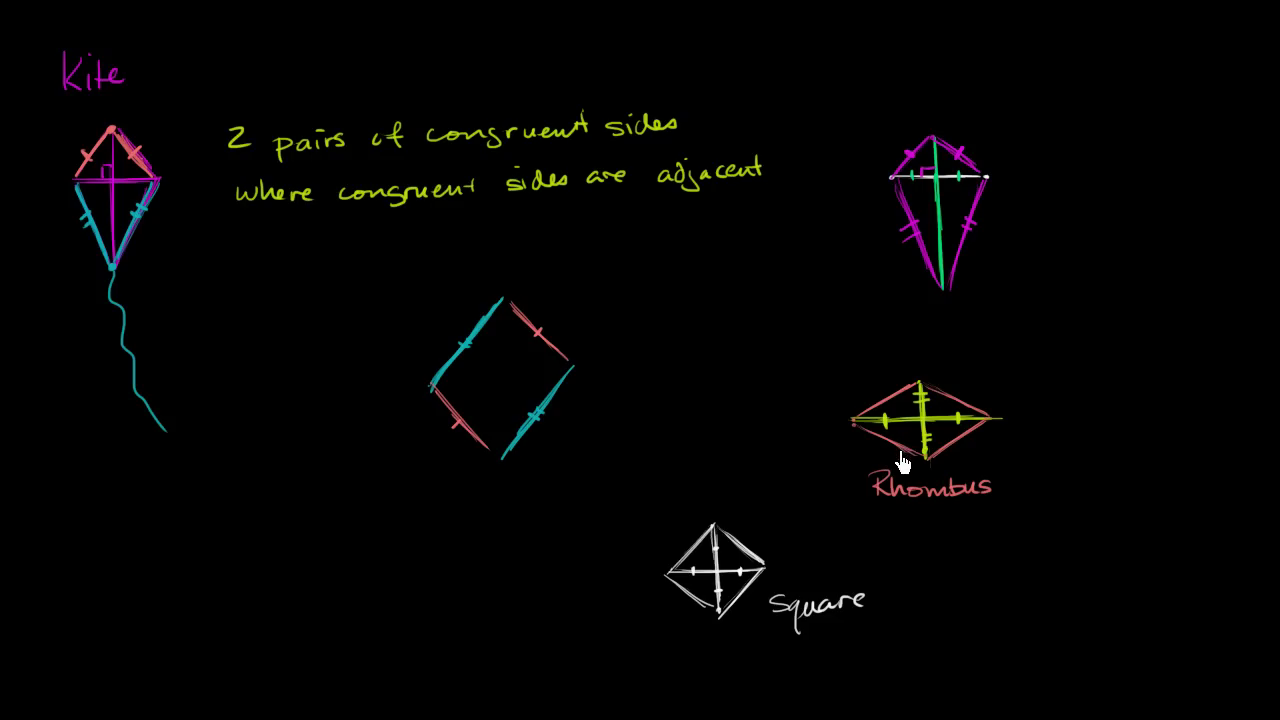 Kite
2 pairs of congruent sides
where congruent sides are adjacent
Rhombus
Square